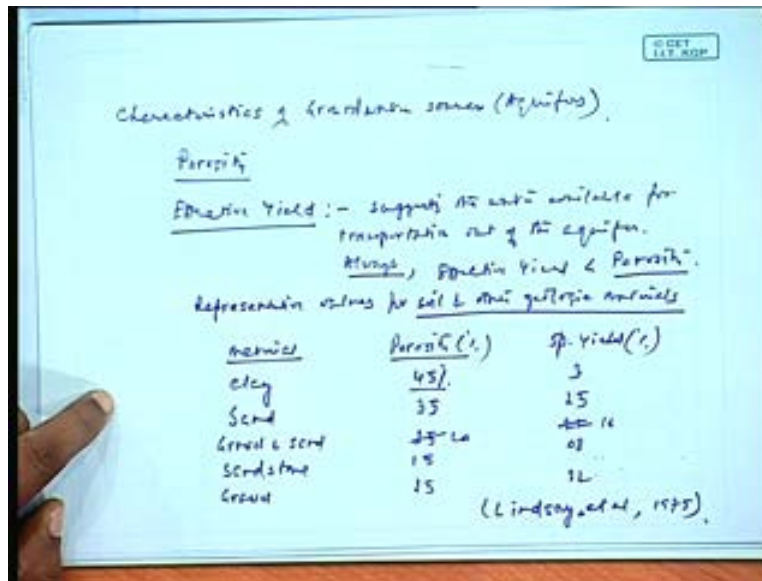 © CET
I.I.T. KGP
Characteristics of Groundwater sources (Aquifers).
Porosity
Effective Yield :- suggests the water available for
transportation out of the aquifer.
Always, Effective Yield < Porosity.
Representative values for soil & other geologic materials
Material Porosity (%) Sp. Yield (%)
Clay 45% 3
Sand 35 25
Gravel & Sand 20 16
Sandstone 15 08
Gravel 25
(Lindsay et al, 1975).